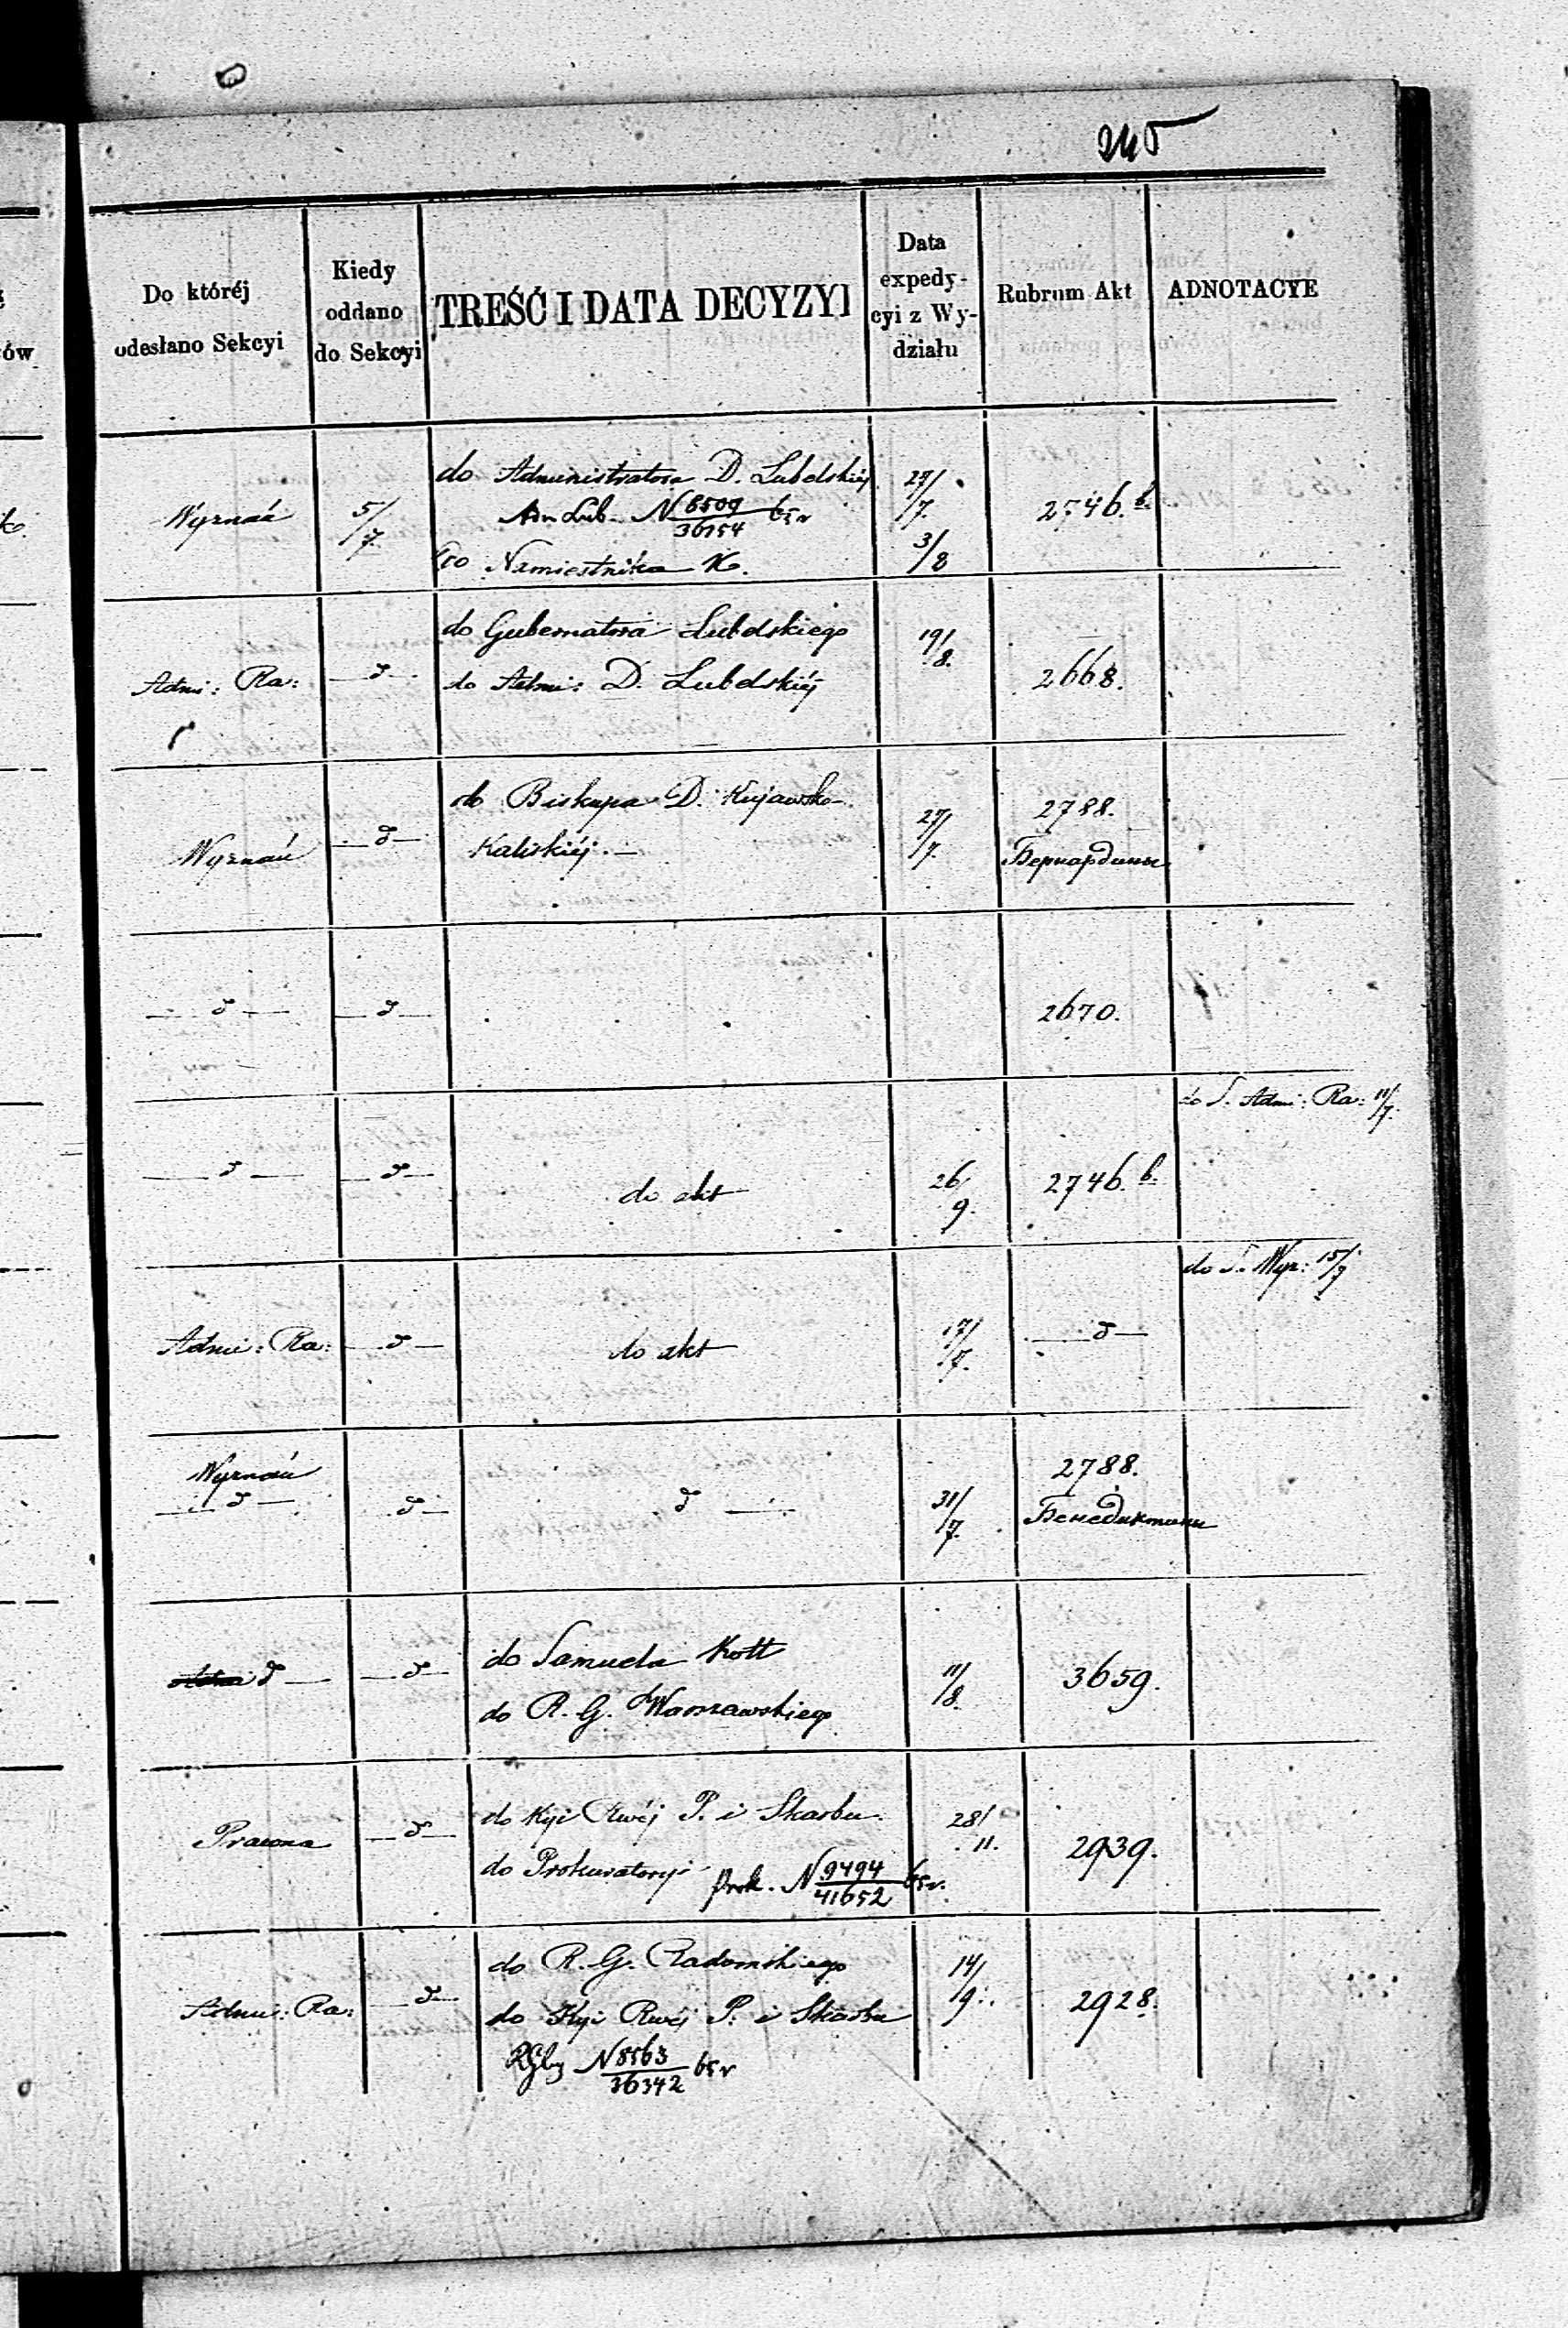 245
Do któréj
odesłano Sekcyi
Kiedy
oddano
do Sekcyi
TREŚĆ I DATA DECYZYI
Data
expedy-
cyi z Wy-
działu
Rubrum Akt
ADNOTACYE
ów
Wyznań
5/7
do Administratora D. Lubelskiéj
Adm Lub. N 8509/36154 65 r
do Namiestnika K.
29/7
3/8
2746.b.
Admi: Ra:
—d—
do Gubernatora Lubelskiego
do Admi: D. Lubelskiéj
19/8.
2668.
Wyznań
—d—
do Biskupa D. Kujawsko-
Kaliskiéj.—
29/7.
2788.
Бернардины
—d—
—d—
2670.
do S. Admi: Ra: 11/7.
—d—
—d—
do akt
26/9.
2746.b.
do S. Wyz: 15/7
Admi: Ra:
—d—
do akt
17/7.
—d—
Wyznań
—d—
—d—
d—
31/7.
2788.
Бенедиктины
d—
—d—
do Samuela Kott
do R. G. Warszawskiego
11/8.
3659.
Prawna
—d—
do Kyi Rwéj P. i Skarbu.
do Prokuratoryi
Prok. N 9494/41652 65 r.
28/11.
2939.
Admi: Ra:
—d—
do R. G. Radomskiego
do Kyi Rwéj P. i Skarbu
N 8563/36342 65 r
14/9.
2928.